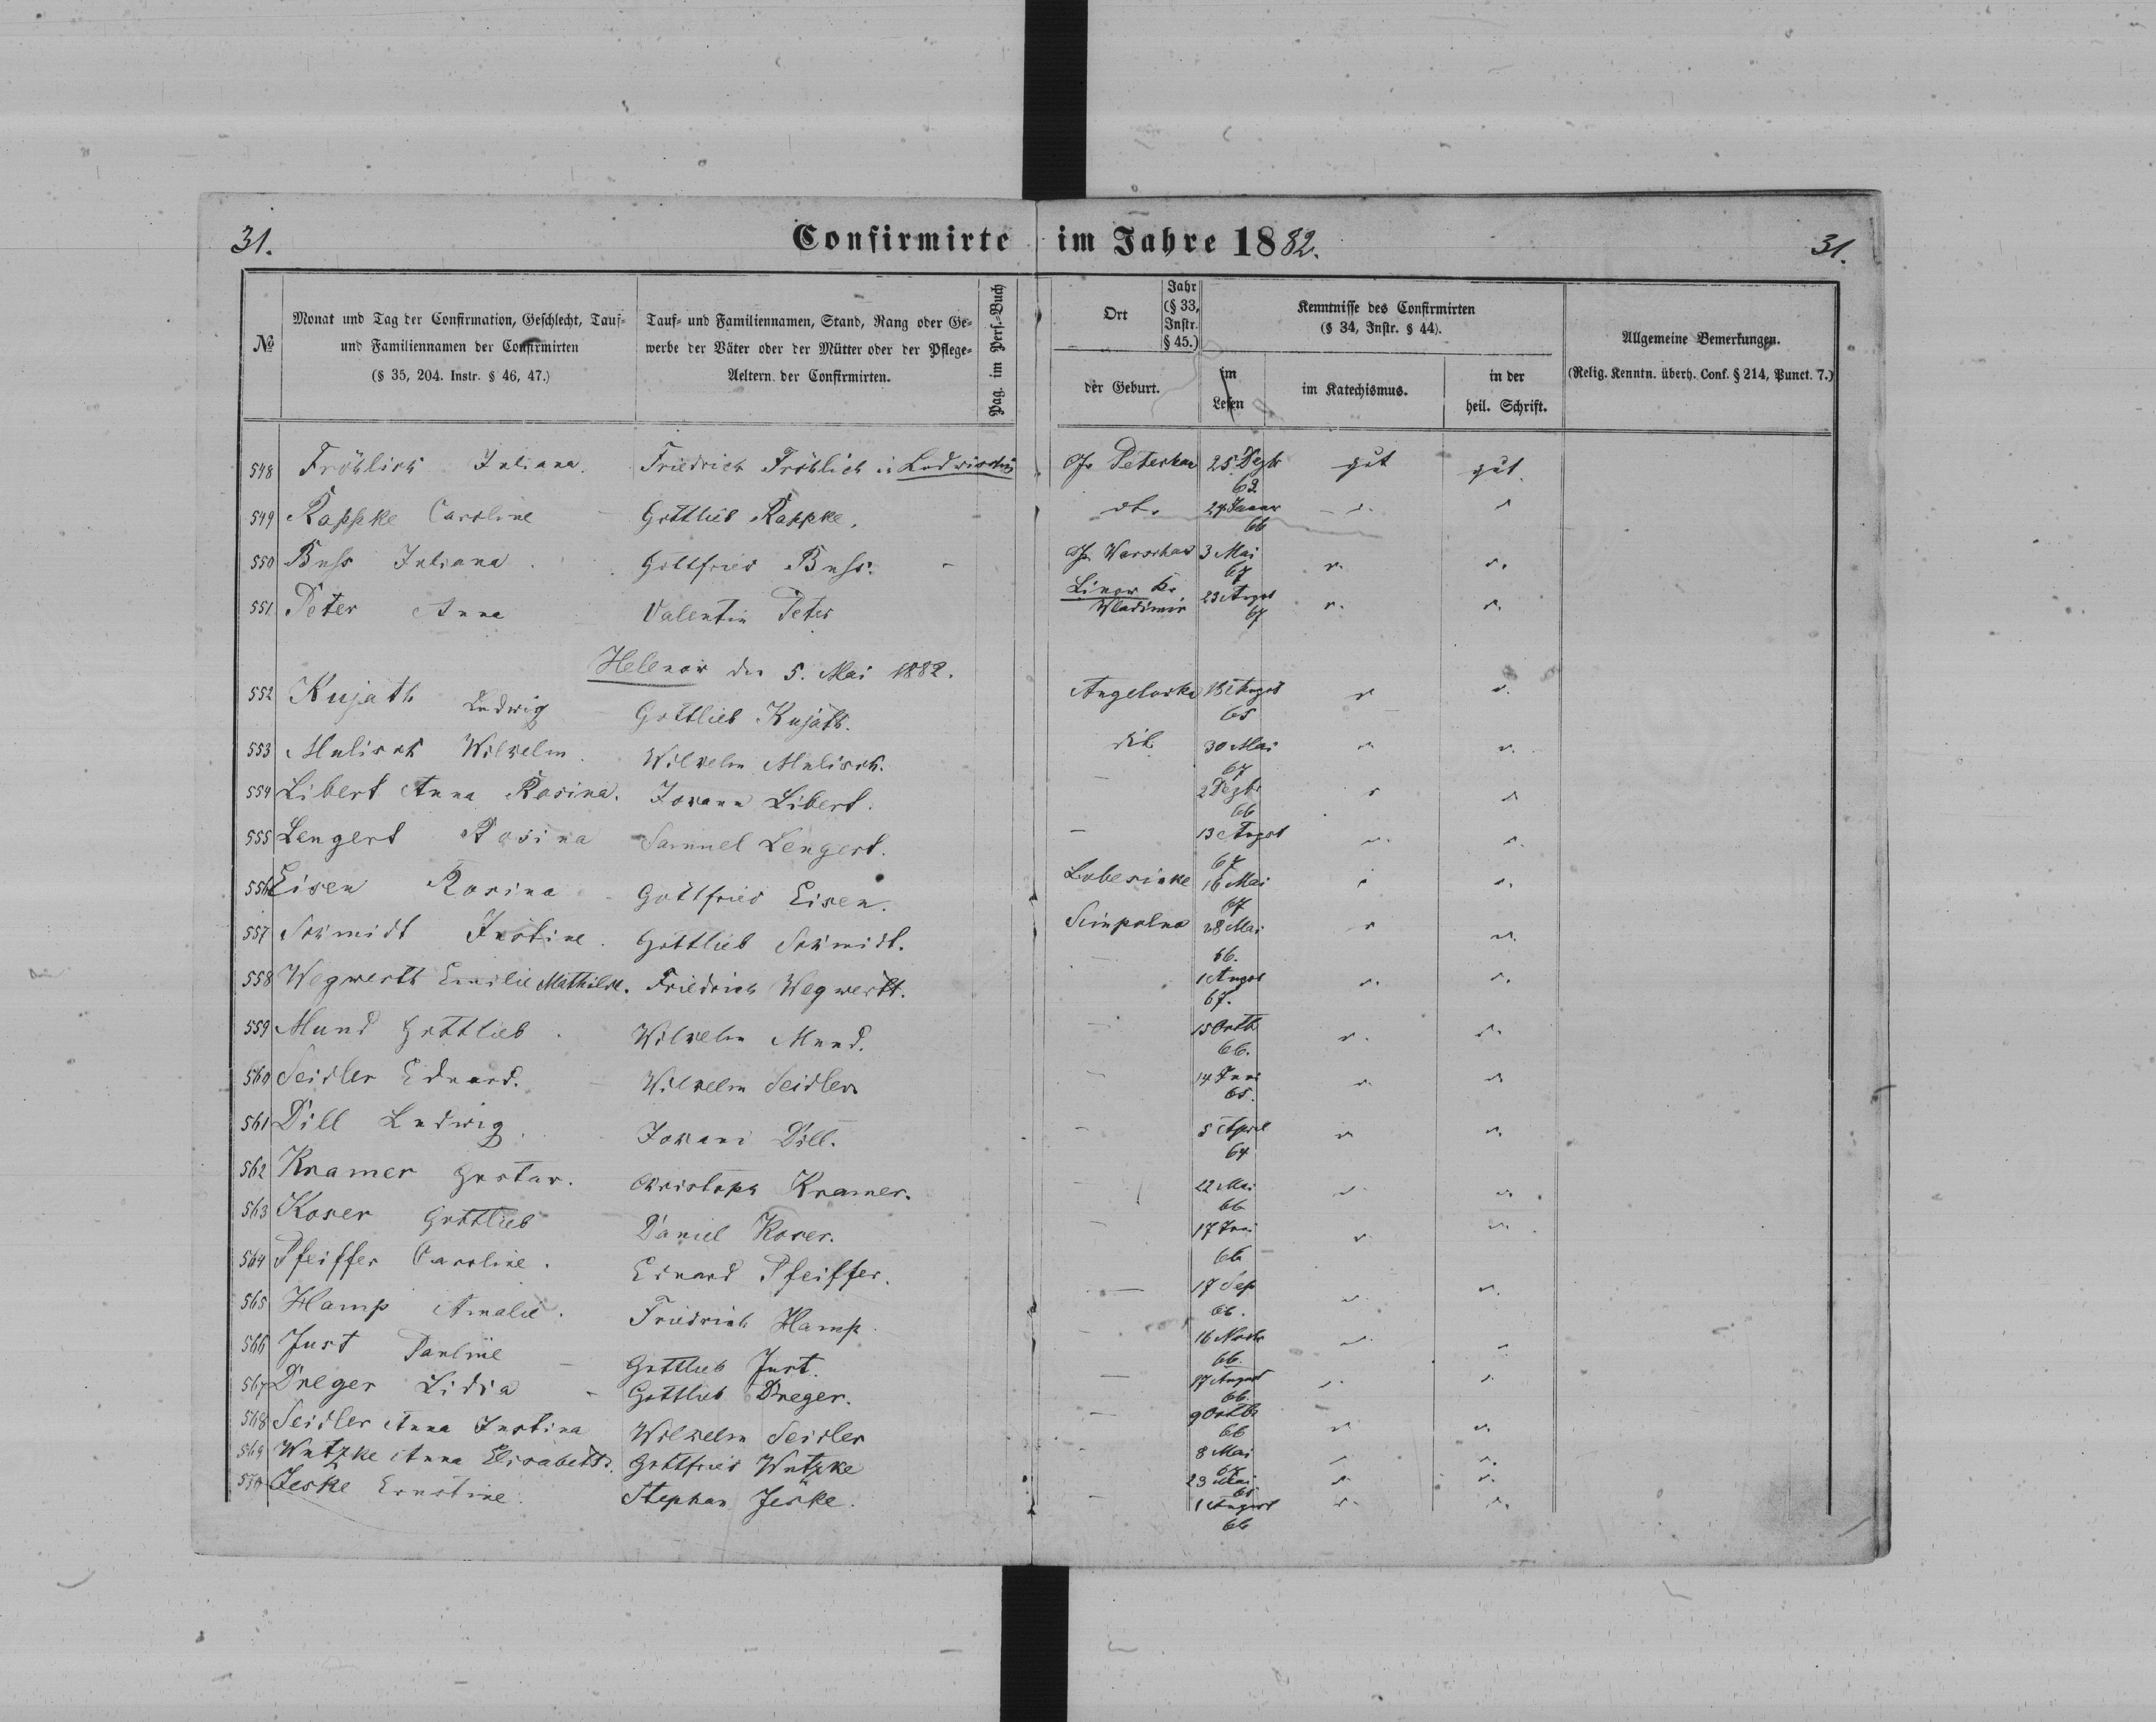 31.
Confirmirte im Jahre 1882.
31.
№
Monat und Tag der Confirmation, Geschlecht, Tauf- und Familiennamen der Confirmirten (§ 35, 204. Instr. § 46, 47.)
Tauf- und Familiennamen, Stand, Rang oder Gewerbe der Väter oder der Mütter oder der Pflege-Aeltern der Confirmirten.
Pag. im Pers.-Buch
Ort
Jahr (§ 33, Instr. § 45.)
der Geburt.
Kenntnisse des Confirmirten (§ 34, Instr. § 44).
im Lesen
im Katechismus.
in der heil. Schrift.
Allgemeine Bemerkungen.
(Relig. Kenntn. überh. Conf. § 214, Punct. 7.)
548 Fröhlich Juliana. Friedrich Fröhlich Peterkau 25 Dezbr gut gut
549 Rappke Caroline Gottlieb Rappke. 24 Januar 66
550 Buss Juliana. Gottfried Buss. Warschau 3 Mai 67
551 Peter Anna Valentin Peter Linow Kr. Wladimir 23 August 67
Helenow den 5. Mai 1882.
552 Kujath Ludwig Gottlieb Kujath. 18 August 65
553 Mulisch Wilhelm. Wilhelm Mulisch. dit 30 Mai 67
554 Libert Anna Rosina. Johann Libert. 2 Dezbr 66
555 Lengert Rosina Samuel Lengert. 13 August 67
556 Eisen Rosina Gottfried Eisen. 16 Mai 67
557 Schmidt Justine. Gottlieb Schmidt. 28 Mai 66.
558 Wegwerth Emilie Mathilde. Friedrich Wegwerth. 1 August 67.
559 Mund Gottlieb. Wilhelm Mund. 15 Octb 66.
560 Seidler Eduard. Wilhelm Seidler 14 Juni 65.
561 Dill Ludwig. Johann Dill. 5 April 64
562 Kramer Gustav. Christoph Kramer. 22 Mai 66
563 Koser Gottlieb Daniel Koser. 17 Juni 66
564 Pfeiffer Caroline. Eduard Pfeiffer. 17 Sep 66.
565 Hamp Amalie. Friedrich Hamp. 16 Novbr 66.
566 Just Pauline Gottlieb Just. August 66.
567 Dreger Lidia Gottlieb Dreger. 9 Octb 66
568 Seidler Anna Justina Wilhelm Seidler 8 Mai
569 Wutzke Anna Elisabeth. Gottfried Wutzke 23 Mai
570 Jeske Ernstine. Stephan Jeske. 1 August 66